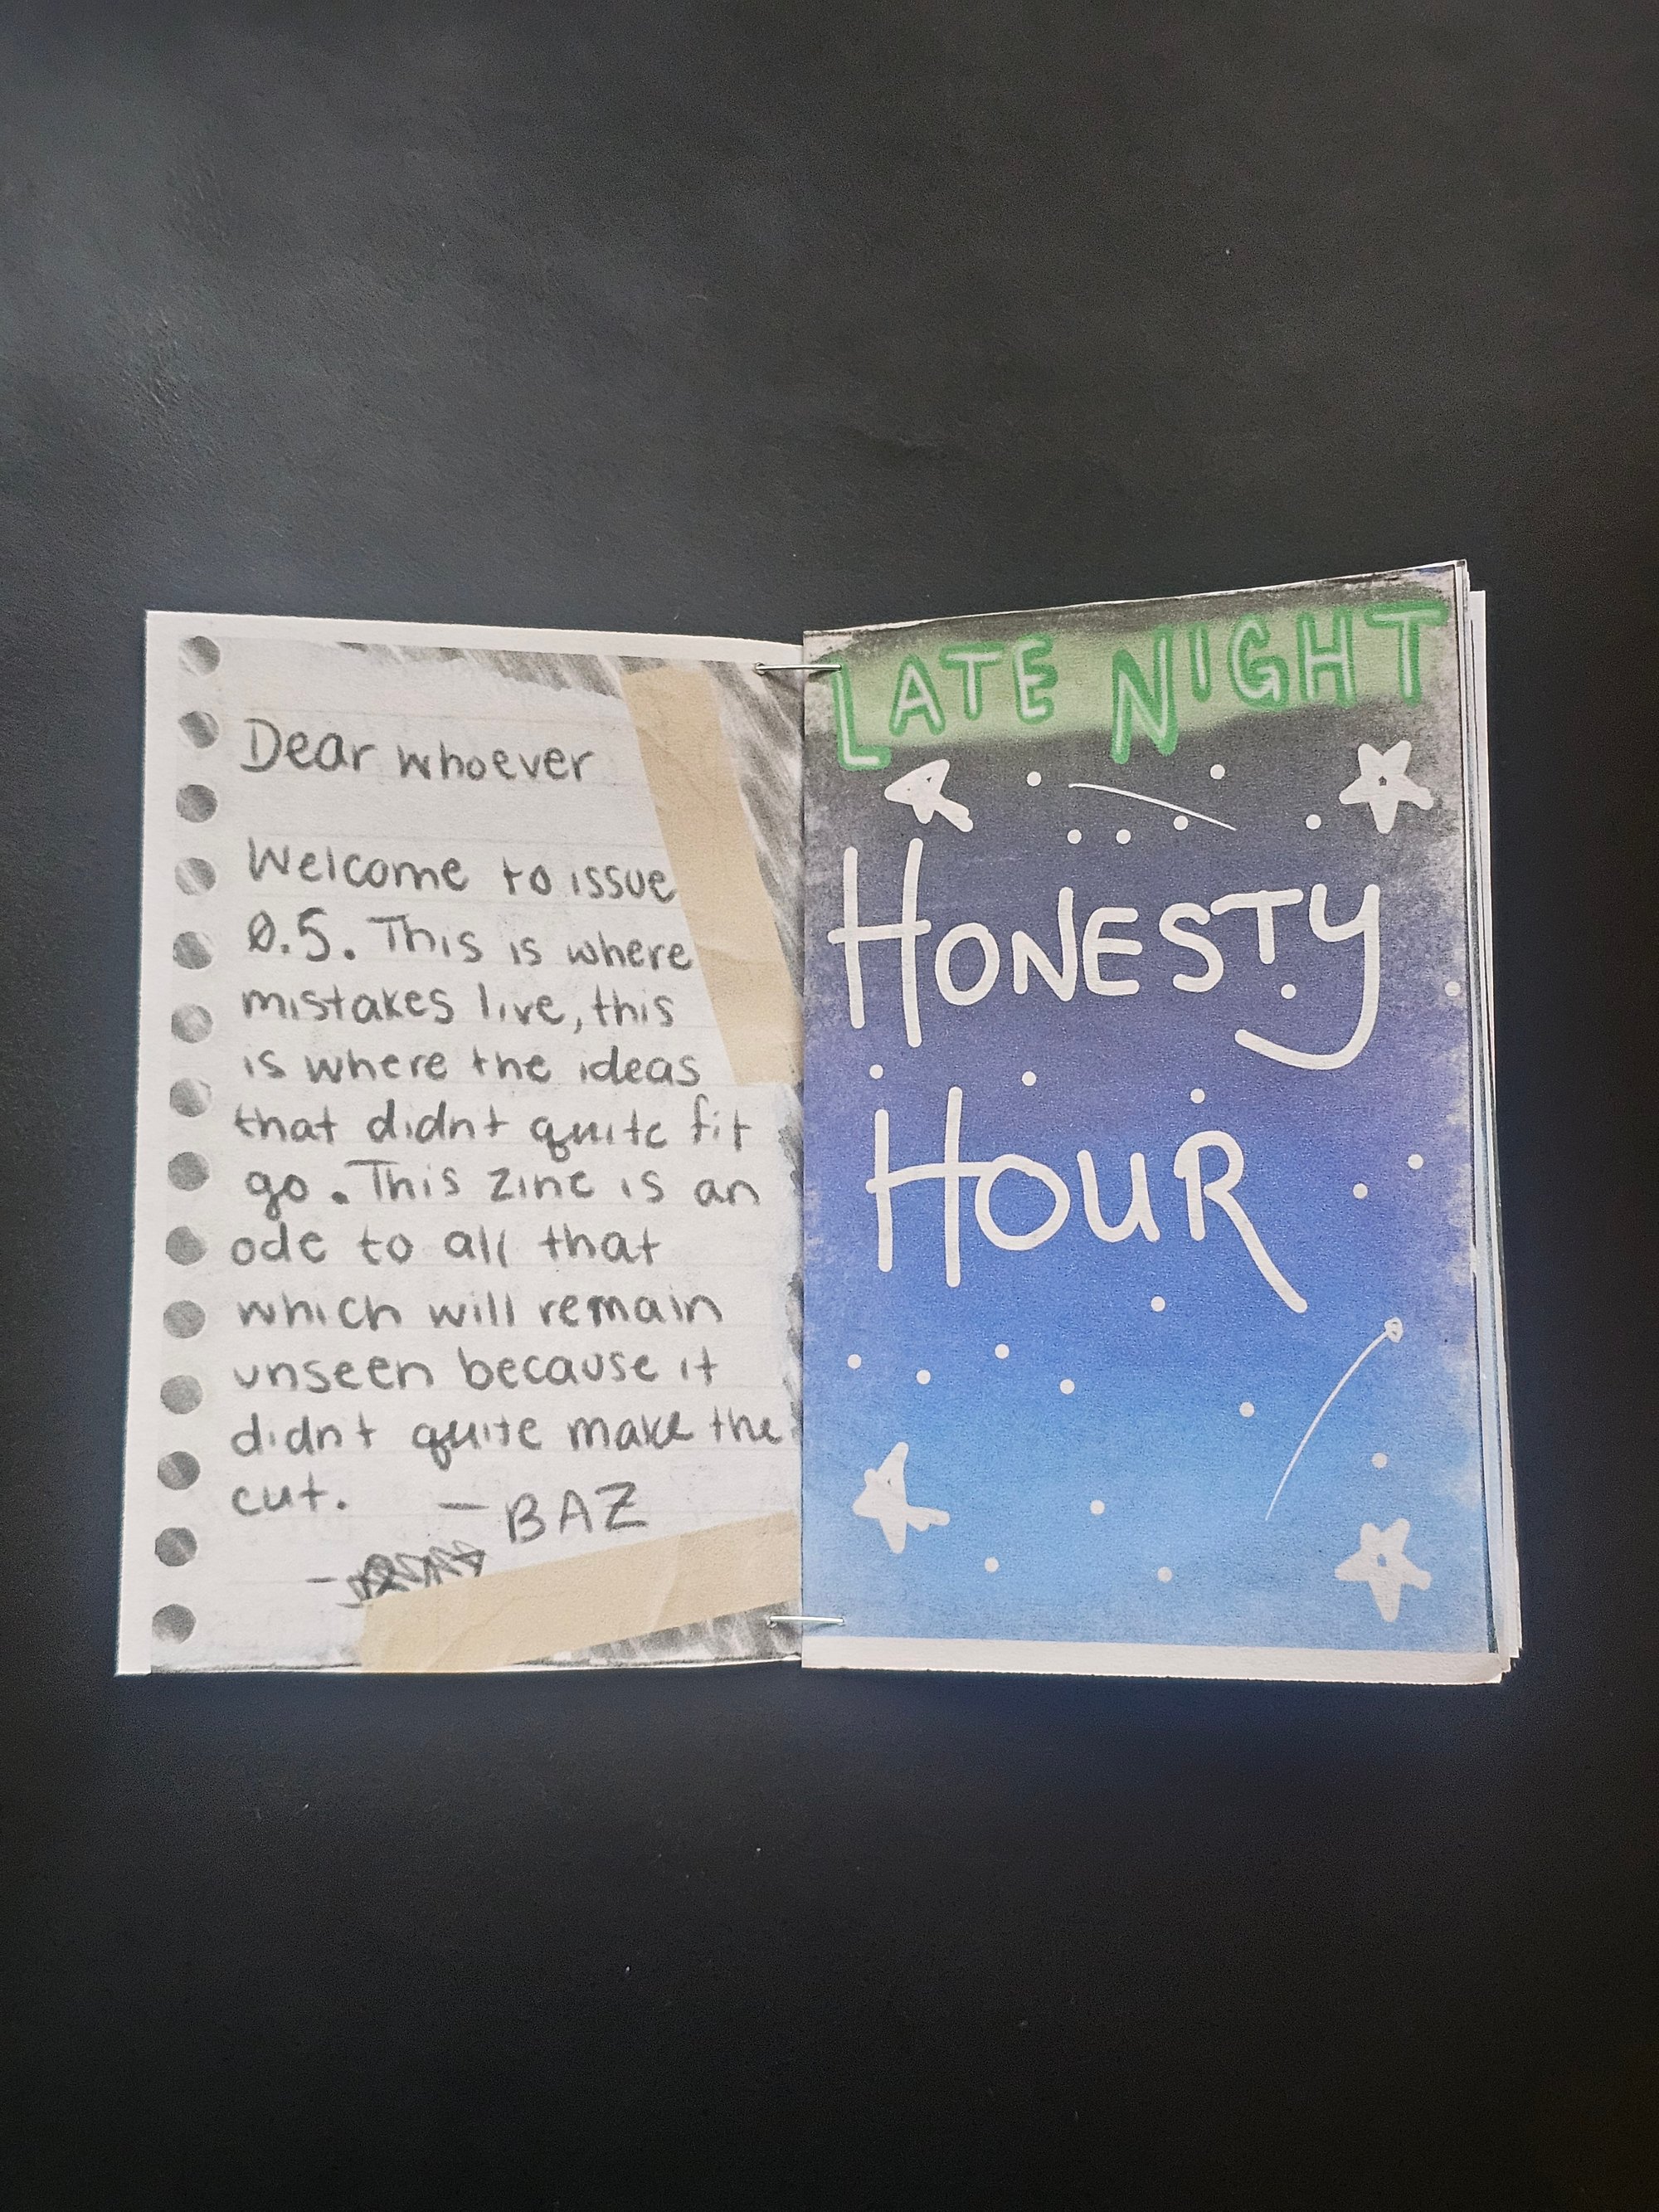 Dear whoever
Welcome to issue
0.5. This is where
mistakes live, this
is where the ideas
that didnt quite fit
go. This zine is an
ode to all that
which will remain
unseen because it
didnt quite make the
cut. - BAZ
-
LATE NIGHT
HONESTY
HOUR